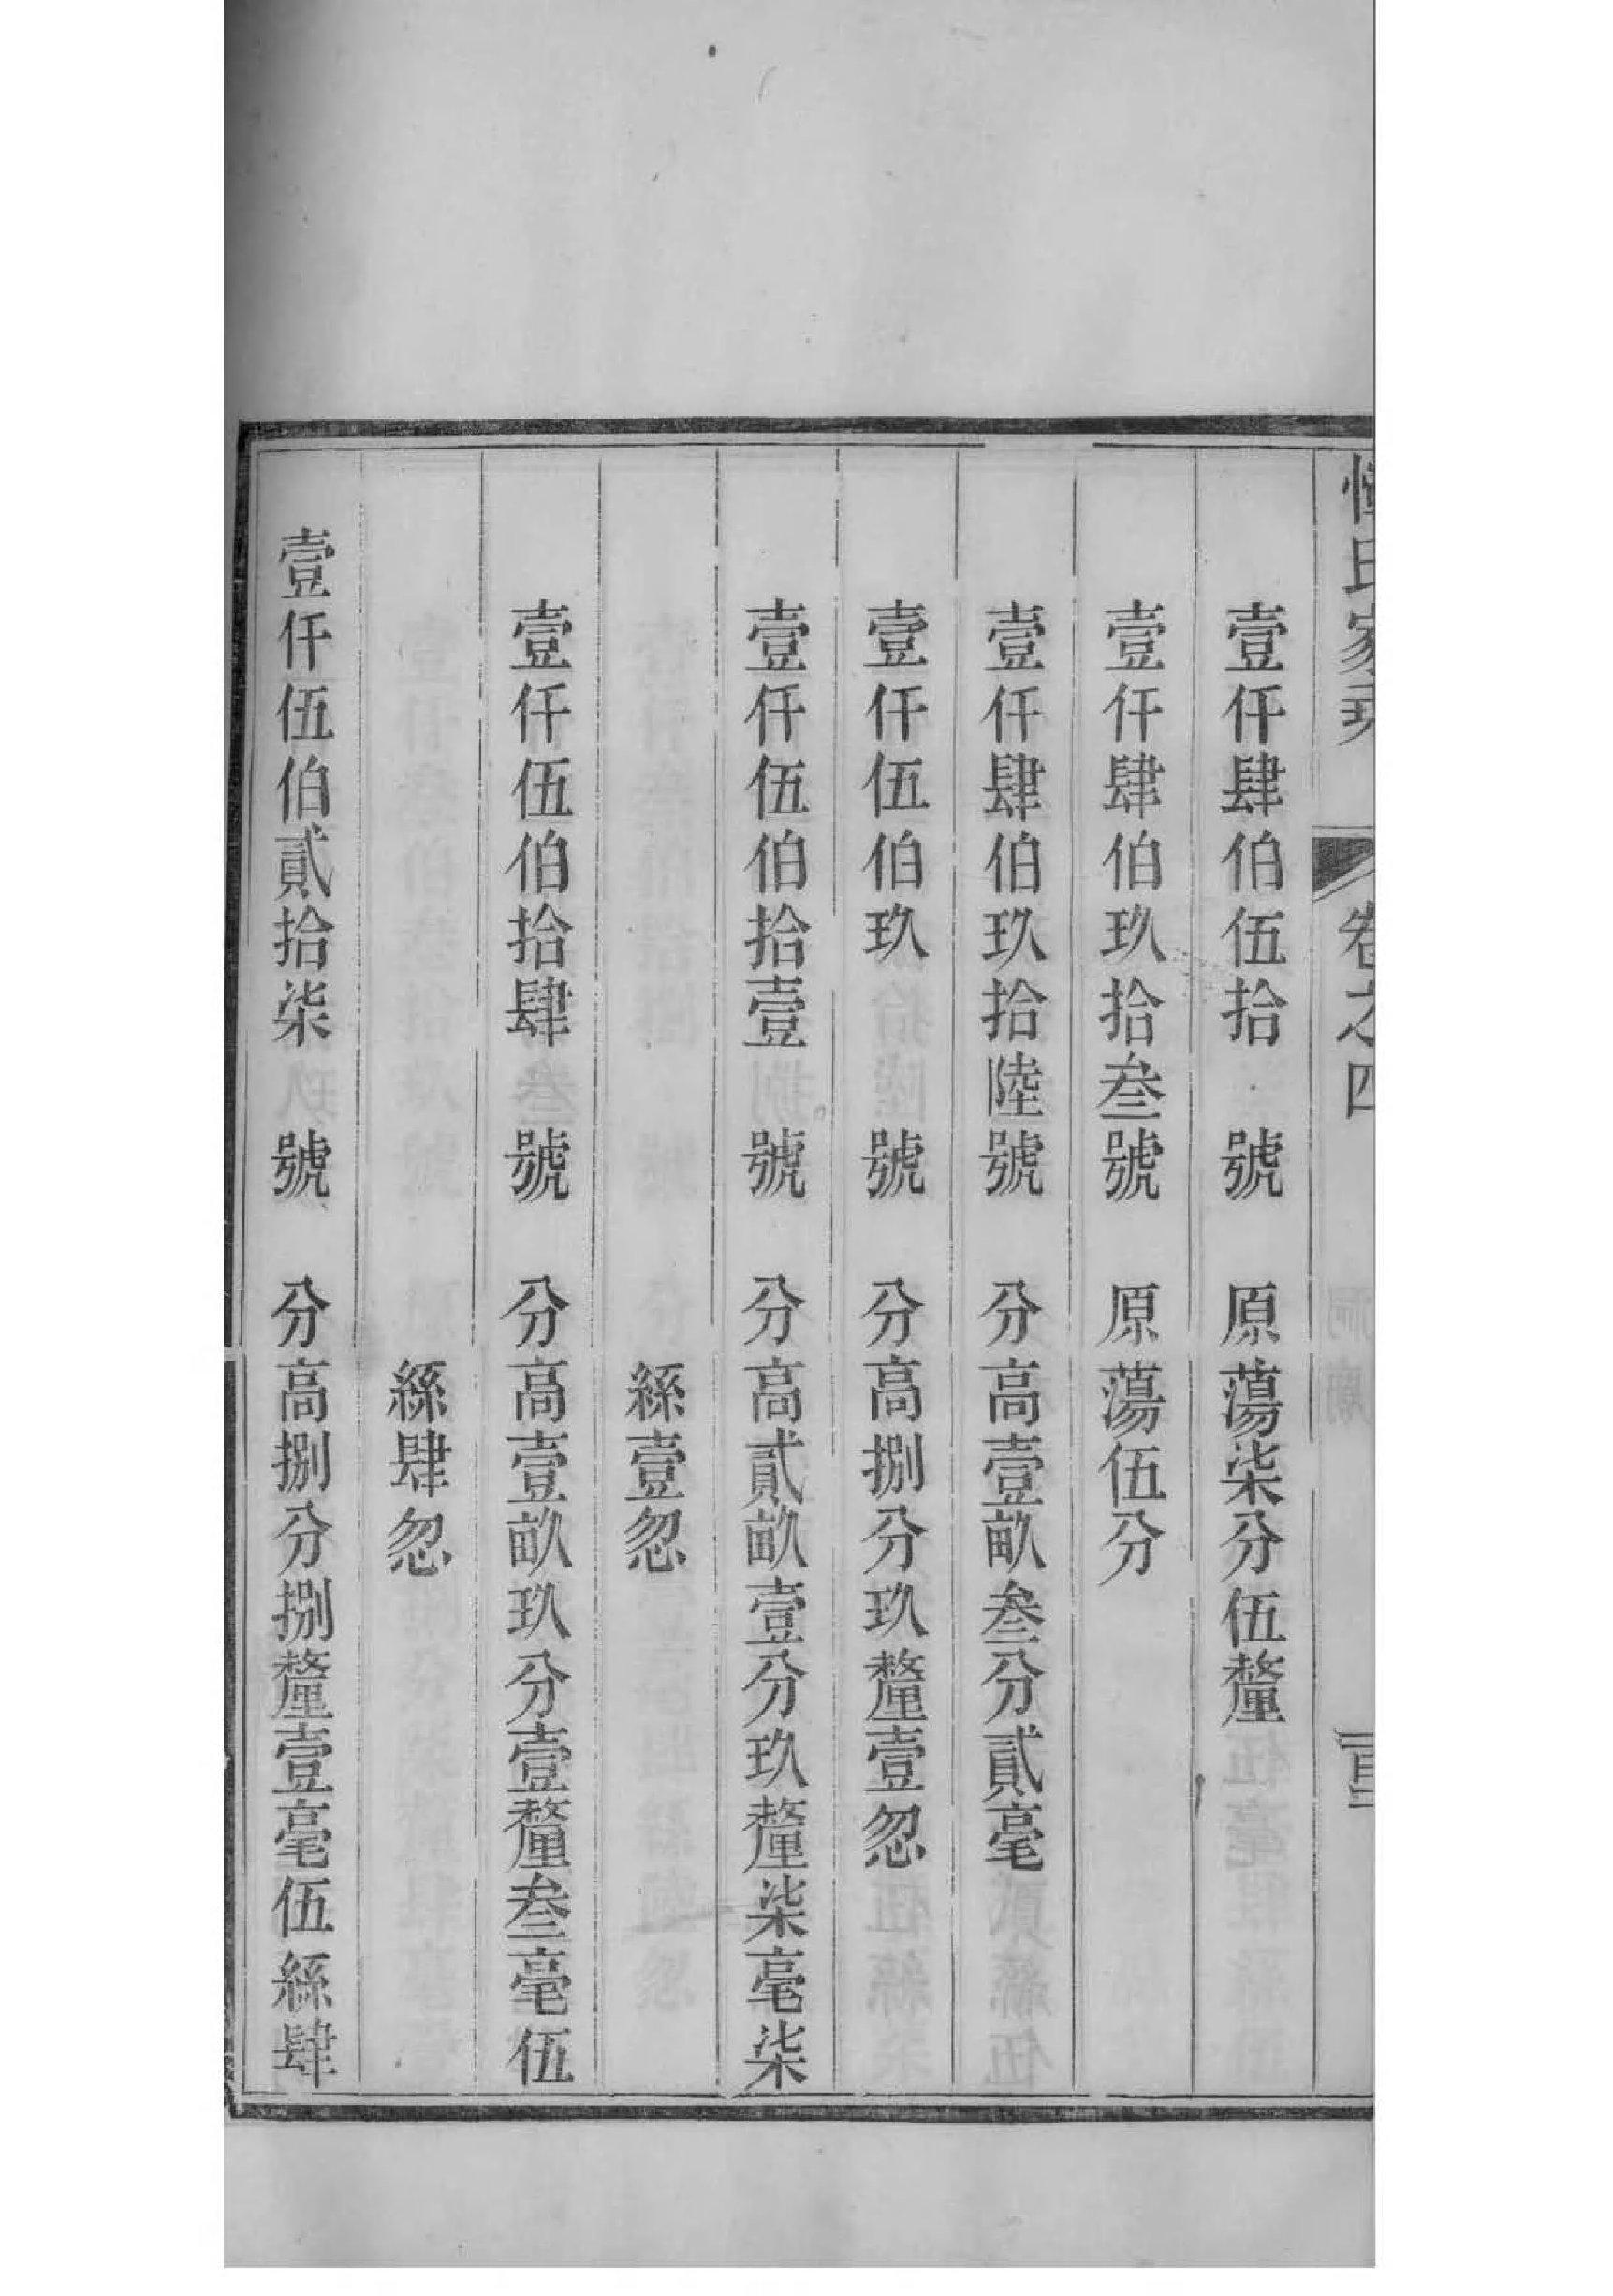 氏家乘 卷之四
壹仟肆伯伍拾號 原蕩柒分伍釐
壹仟肆伯玖拾叁號 原蕩伍分
壹仟肆伯玖拾陸號 分高壹畝叁分貳毫
壹仟伍伯玖號 分高捌分玖釐壹忽
壹仟伍伯拾壹號 分高貳畝壹分玖釐柒毫柒
絲壹忽
壹仟伍伯拾肆號 分高壹畝玖分壹釐叁毫伍
絲肆忽
壹仟伍伯貳拾柒號 分高捌分捌釐壹毫伍絲肆